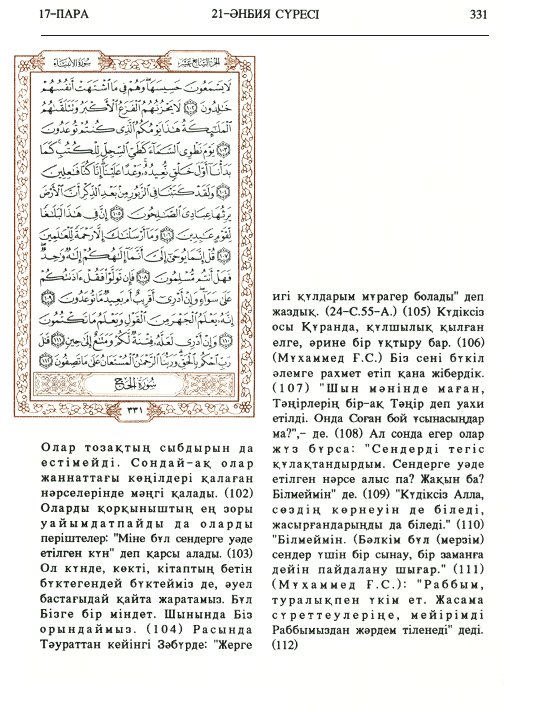 17–ПАРА 21–ӘНБИЯ СҮРЕСІ 331
الجزء السابع عشر سورة الأنبياء
لَا يَسْمَعُونَ حَسِيسَهَا وَهُمْ فِي مَا اشْتَهَتْ أَنْفُسُهُمْ
خَالِدُونَ ﴿١٠٢﴾ لَا يَحْزُنُهُمُ الْفَزَعُ الْأَكْبَرُ وَتَتَلَقَّاهُمُ
الْمَلَائِكَةُ هَذَا يَوْمُكُمُ الَّذِي كُنْتُمْ تُوعَدُونَ
﴿١٠٣﴾ يَوْمَ نَطْوِي السَّمَاءَ كَطَيِّ السِّجِلِّ لِلْكُتُبِ كَمَا
بَدَأْنَا أَوَّلَ خَلْقٍ نُعِيدُهُ وَعْدًا عَلَيْنَا إِنَّا كُنَّا فَاعِلِينَ
﴿١٠٤﴾ وَلَقَدْ كَتَبْنَا فِي الزَّبُورِ مِنْ بَعْدِ الذِّكْرِ أَنَّ الْأَرْضَ
يَرِثُهَا عِبَادِيَ الصَّالِحُونَ ﴿١٠٥﴾ إِنَّ فِي هَذَا لَبَلَاغًا
لِقَوْمٍ عَابِدِينَ ﴿١٠٦﴾ وَمَا أَرْسَلْنَاكَ إِلَّا رَحْمَةً لِلْعَالَمِينَ
﴿١٠٧﴾ قُلْ إِنَّمَا يُوحَى إِلَيَّ أَنَّمَا إِلَهُكُمْ إِلَهٌ وَاحِدٌ
فَهَلْ أَنْتُمْ مُسْلِمُونَ ﴿١٠٨﴾ فَإِنْ تَوَلَّوْا فَقُلْ آذَنْتُكُمْ
عَلَى سَوَاءٍ وَإِنْ أَدْرِي أَقَرِيبٌ أَمْ بَعِيدٌ مَا تُوعَدُونَ ﴿١٠٩﴾
إِنَّهُ يَعْلَمُ الْجَهْرَ مِنَ الْقَوْلِ وَيَعْلَمُ مَا تَكْتُمُونَ
﴿١١٠﴾ وَإِنْ أَدْرِي لَعَلَّهُ فِتْنَةٌ لَكُمْ وَمَتَاعٌ إِلَى حِينٍ ﴿١١١﴾ قَالَ
رَبِّ احْكُمْ بِالْحَقِّ وَرَبُّنَا الرَّحْمَنُ الْمُسْتَعَانُ عَلَى مَا تَصِفُونَ ﴿١١٢﴾
سورة الحج
٣٣١
Олар тозақтың сыбдырын да
естімейді. Сондай–ақ олар
жаннаттағы көңілдері қалаған
нәрселерінде мәңгі қалады. (102)
Оларды қорқыныштың ең зоры
уайымдатпайды да оларды
періштелер: "Міне бұл сендерге уәде
етілген күн" деп қарсы алады. (103)
Ол күнде, көкті, кітаптың бетін
бүктегендей бүктейміз де, әуел
бастағыдай қайта жаратамыз. Бұл
Бізге бір міндет. Шынында Біз
орындаймыз. (104) Расында
Тәураттан кейінгі Зәбүрде: "Жерге
игі құлдарым мұрагер болады" деп
жаздық. (24–С.55–А.) (105) Күдіксіз
осы Құранда, құлшылық қылған
елге, әрине бір ұқтыру бар. (106)
(Мұхаммед Ғ.С.) Біз сені бүкіл
әлемге рахмет етіп қана жібердік.
(107) "Шын мәнінде маған,
Тәңірлерің бір–ақ Тәңір деп уахи
етілді. Онда Соған бой ұсынасыңдар
ма?",– де. (108) Ал сонда егер олар
жүз бұрса: "Сендерді тегіс
құлақтандырдым. Сендерге уәде
етілген нәрсе алыс па? Жақын ба?
Білмеймін" де. (109) "Күдіксіз Алла,
сөздің көрнеуін де біледі,
жасырғандарыңды да біледі." (110)
"Білмеймін. (Бәлкім бұл (мерзім)
сендер үшін бір сынау, бір заманға
дейін пайдалану шығар." (111)
(Мұхаммед Ғ.С.): "Раббым,
туралықпен үкім ет. Жасама
сүреттеулеріңе, мейірімді
Раббымыздан жәрдем тіленеді" деді.
(112)